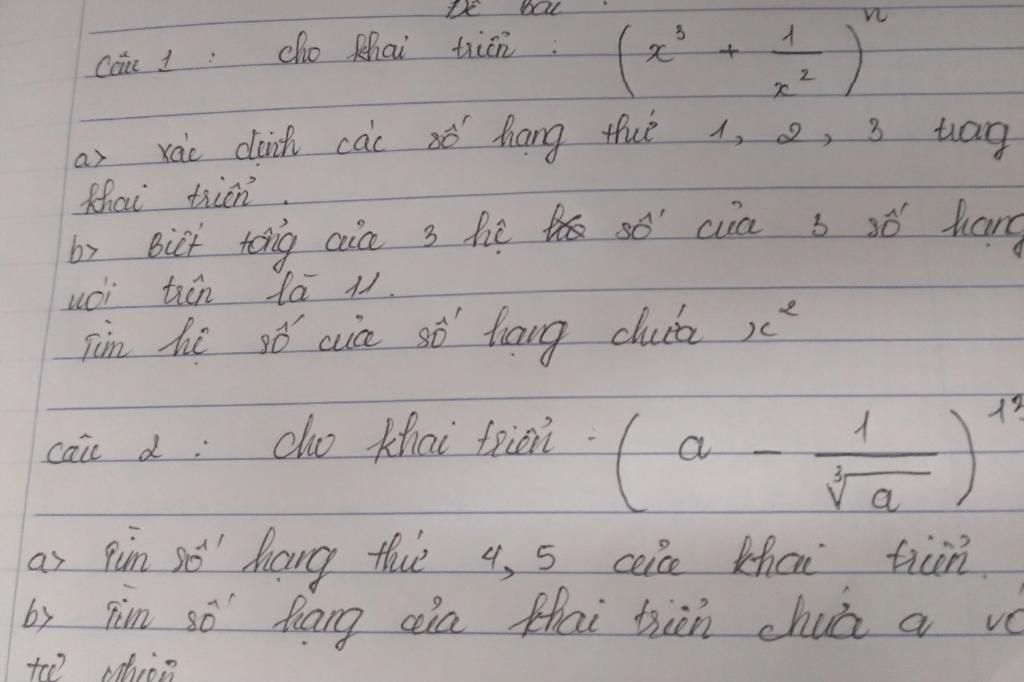 Đề bài :
Câu 1 : cho khai triển : (x³ + 1/x²)ⁿ
a> xác định các số hạng thứ 1, 2, 3 trong
khai triển.
b> Biết tổng của 3 hệ số của 3 số hạng
nói trên là 11.
Tìm hệ số của số hạng chứa x²
Câu 2 : Cho khai triển : (a - 1/∛a)
a> Tìm số hạng thứ 4, 5 của khai triển.
b> Tìm số hạng của khai triển chứa a
tự nhiên